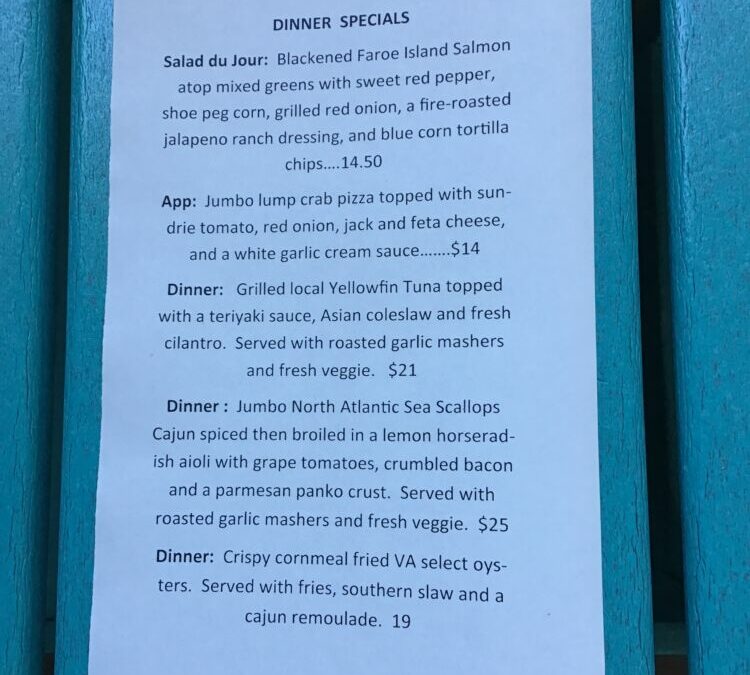 DINNER SPECIALS
Salad du Jour: Blackened Faroe Island Salmon
atop mixed greens with sweet red pepper,
shoe peg corn, grilled red onion, a fire-roasted
jalapeno ranch dressing, and blue corn tortilla
chips....14.50
App: Jumbo lump crab pizza topped with sun-
drie tomato, red onion, jack and feta cheese,
and a white garlic cream sauce.......$14
Dinner: Grilled local Yellowfin Tuna topped
with a teriyaki sauce, Asian coleslaw and fresh
cilantro. Served with roasted garlic mashers
and fresh veggie. $21
Dinner : Jumbo North Atlantic Sea Scallops
Cajun spiced then broiled in a lemon horserad-
ish aioli with grape tomatoes, crumbled bacon
and a parmesan panko crust. Served with
roasted garlic mashers and fresh veggie. $25
Dinner: Crispy cornmeal fried VA select oys-
ters. Served with fries, southern slaw and a
cajun remoulade. 19